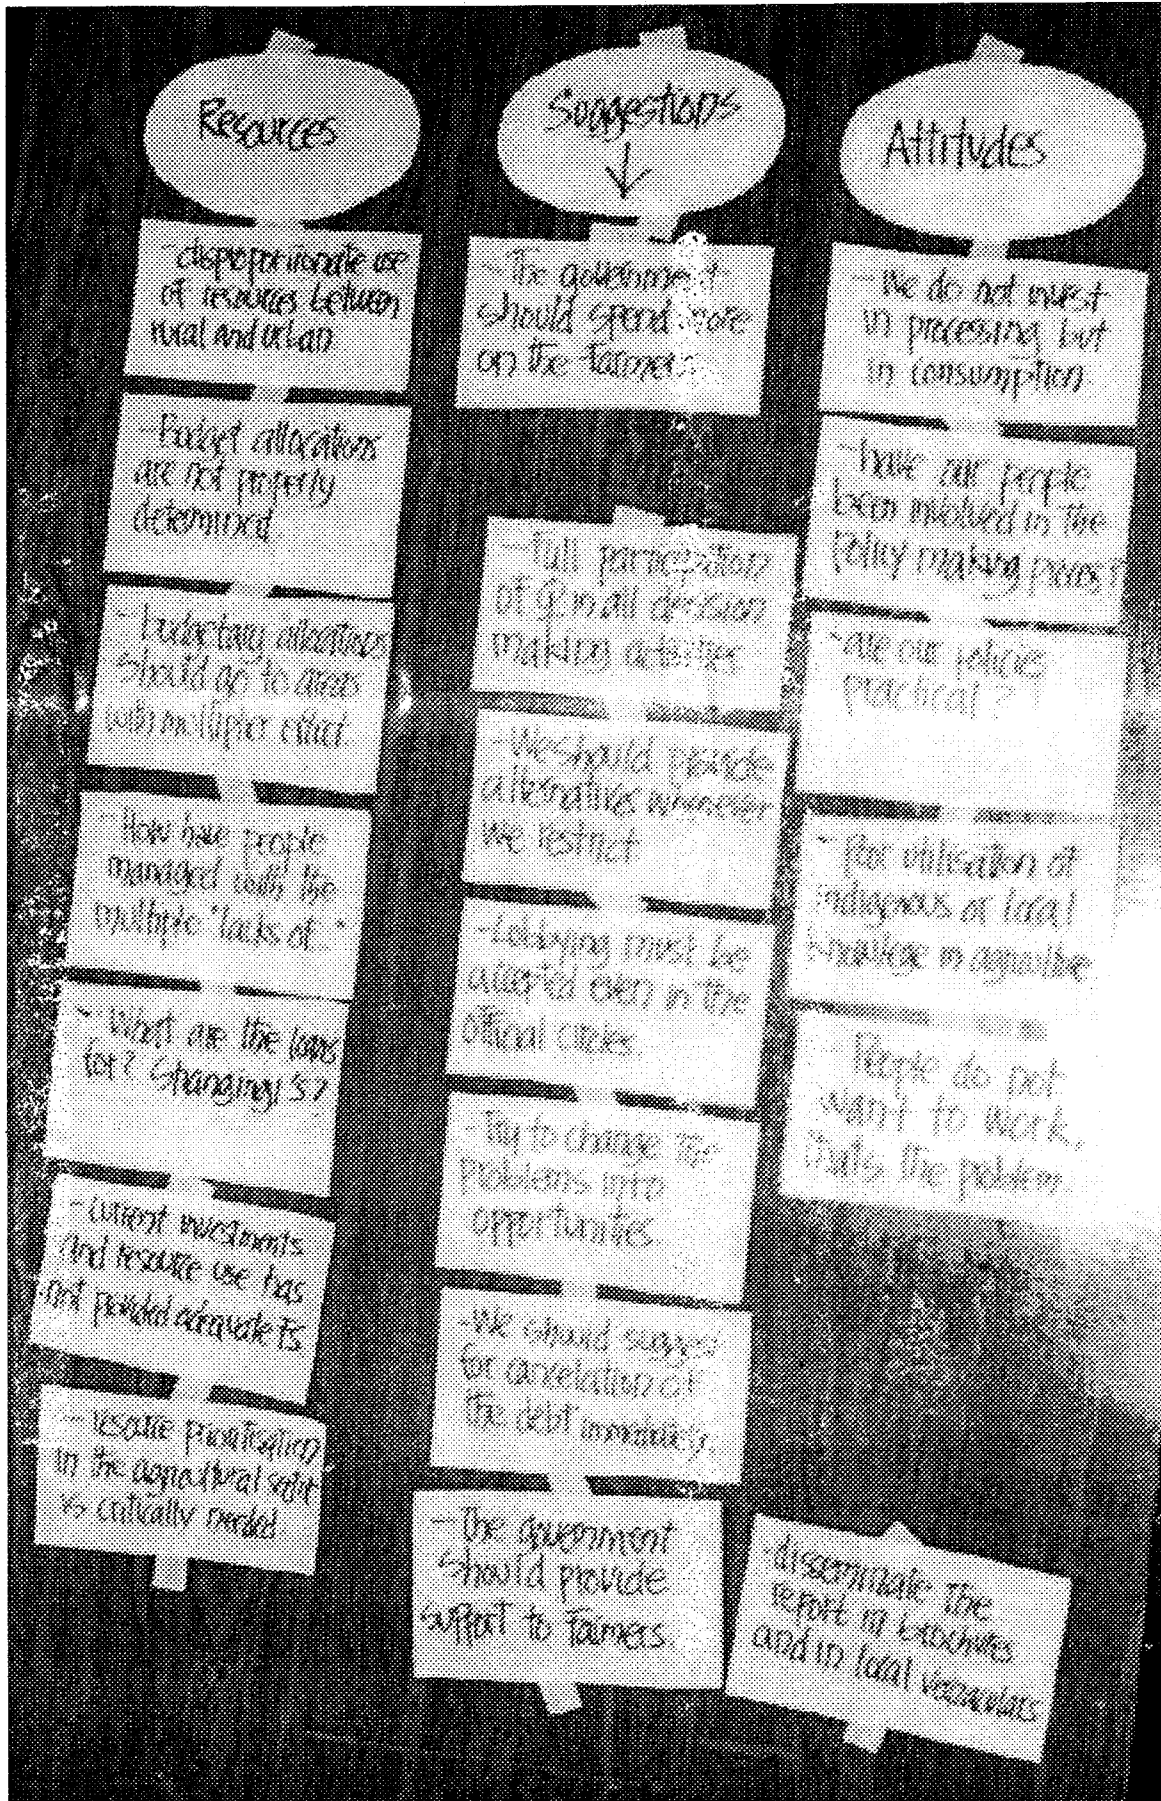 Resources
- disproportionate use
of resources between
rural and urban
- Budget allocations
are not properly
determined
- budgetary allocations
should go to areas
with multiplier effect.
- How have people
managed with the
multiple "lacks of..."
- What are the loans
for?
- current investments
and resource use has
not provided adequate FS
- resource prioritisation
in the agricultural
is critically needed
Suggestions
↓
- The government
should spend more
on the farmers
- Full participation
of in all decision
making activities
- We should provide
alternatives whenever
we restrict
- Lobbying must be
even in the
official circles
- Try to change the
problems into
opportunities
- We should suggest
for cancelation of
the debt immediately.
- The government
should provide
support to farmers
Attitudes
- We do not invest
in processing but
in consumption
- have our people
been involved in the
policy making process?
- are our policies
practical?
- utilisation of
indigenous or local
knowledge in
- People do not
want to work,
thats the problem
- disseminate the
report in brochures
and in local vernaculars